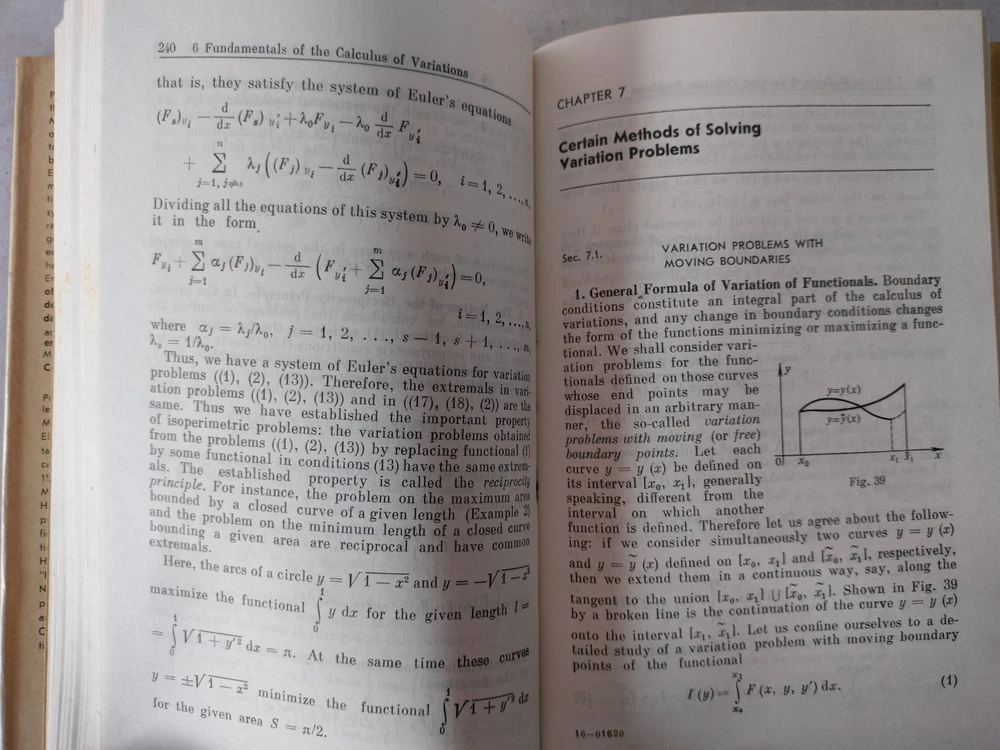 240 6 Fundamentals of the Calculus of Variations
that is, they satisfy the system of Euler's equations
(F_s)_{y_i} − d/dx (F_s)_{y_i'} + λ_0 F_{y_i} − λ_0 d/dx F_{y_i'}
+ ∑_{j=1, j≠s}^{n} λ_j ((F_j)_{y_i} − d/dx (F_j)_{y_i'}) = 0, i = 1, 2, ..., n.
Dividing all the equations of this system by λ_0 ≠ 0, we write
it in the form
F_{y_i} + ∑_{j=1}^{m} α_j (F_j)_{y_i} − d/dx (F_{y_i'} + ∑_{j=1}^{m} α_j (F_j)_{y_i'}) = 0,
i = 1, 2, ..., n,
where α_j = λ_j/λ_0, j = 1, 2, . . ., s − 1, s + 1, . . ., m,
λ_s = 1/λ_0.
Thus, we have a system of Euler's equations for variation
problems ((1), (2), (13)). Therefore, the extremals in vari-
ation problems ((1), (2), (13)) and in ((17), (18), (2)) are the
same. Thus we have established the important property
of isoperimetric problems: the variation problems obtained
from the problems ((1), (2), (13)) by replacing functional (1)
by some functional in conditions (13) have the same extrem-
als. The established property is called the reciprocity
principle. For instance, the problem on the maximum area
bounded by a closed curve of a given length (Example 2)
and the problem on the minimum length of a closed curve
bounding a given area are reciprocal and have common
extremals.
Here, the arcs of a circle y = √(1 − x²) and y = −√(1 − x²)
maximize the functional ∫_0^1 y dx for the given length l =
= ∫_0^1 √(1 + y'²) dx = π. At the same time these curves
y = ±√(1 − x²) minimize the functional ∫_0^1 √(1 + y'²) dx
for the given area S = π/2.
CHAPTER 7
Certain Methods of Solving
Variation Problems
Sec. 7.1. VARIATION PROBLEMS WITH
MOVING BOUNDARIES
1. General Formula of Variation of Functionals. Boundary
conditions constitute an integral part of the calculus of
variations, and any change in boundary conditions changes
the form of the functions minimizing or maximizing a func-
tional. We shall consider vari-
ation problems for the func-
tionals defined on those curves
whose end points may be
displaced in an arbitrary man-
ner, the so-called variation
problems with moving (or free)
boundary points. Let each
curve y = y (x) be defined on
its interval [x_0, x_1], generally
speaking, different from the
interval on which another
y
y=y(x)
y=ỹ(x)
0 x_0 x_1 x̃_1 x
Fig. 39
function is defined. Therefore let us agree about the follow-
ing: if we consider simultaneously two curves y = y (x)
and y = ỹ (x) defined on [x_0, x_1] and [x̃_0, x̃_1], respectively,
then we extend them in a continuous way, say, along the
tangent to the union [x_0, x_1] ∪ [x̃_0, x̃_1]. Shown in Fig. 39
by a broken line is the continuation of the curve y = y (x)
onto the interval [x_1, x̃_1]. Let us confine ourselves to a de-
tailed study of a variation problem with moving boundary
points of the functional
I (y) = ∫_{x_0}^{x_1} F (x, y, y') dx. (1)
16—01620